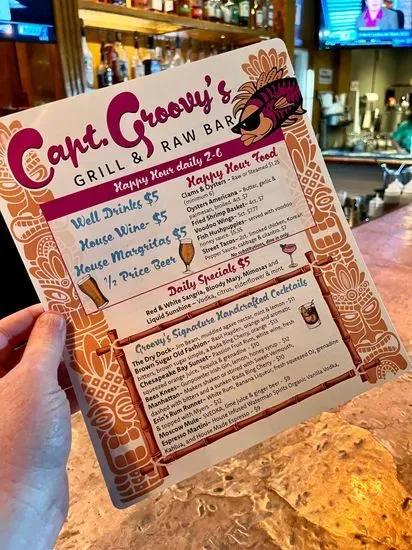 Capt. Groovy's
GRILL & RAW BAR
Happy Hour daily 2-6
Well Drinks $5
House Wine- $5
House Margritas $5
½ Price Beer
Happy Hour Food
Clams & Oysters – Raw or Steamed $1.25
(minimum 6)
Oysters Americana – Butter, garlic &
parmesan, broiled. 4ct. $7
Fried Shrimp Basket- 4ct. $7
Voodoo Wings- 5ct. $7
Fish Hushpuppies- served with voodoo
honey sauce.
Street "Tacos- 2ct. Smoked chicken, Korean
Pepper Sauce, cabbage & cilantro. $7
No substitutions, dine in only
Daily Specials $5
Red & White Sangria, Bloody Mary, Mimosas and
Liquid Sunshine – Vodka, citrus, elderflower & mint.
Groovy's Signature Handcrafted Cocktails
The Dry Dock- Jim Beam, muddled agave nectar, mint & lemon -
Brown Sugar Old Fashion- Basil Hayden, orange and aromatic
bitters, brown sugar simple, a Bada Bing Cherry, orange
Chesapeake Bay Sunset- Passion Fruit Rum, white rum, fresh
squeezed orange juice, Tequila & grenadine
Bees Knees- Gunpowder Irish Gin, lemon, honey syrup – $12
Manhattan- Shaken with Sweet Vermouth,
dashed with bitters and a Bada Bing Cherry - $10
Erin's Rum Runner- White Rum, Banana Liqueur, fresh squeezed OJ, grenadine
& topped with Myers - $12
Moscow Mule- SVEDKA, lime juice & ginger beer – $9
Espresso Martini- House Infused Waterman Spirits Organic Vanilla Vodka,
Kahlua, and House Made Espresso - $9